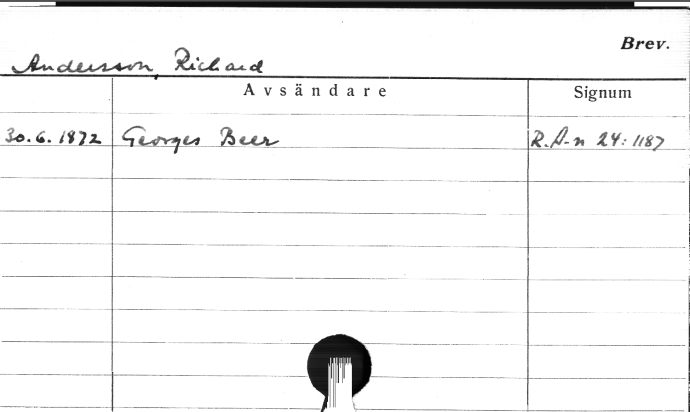 Brev.
Andersson, Richard
Avsändare Signum
30.6.1872 Georges Beer R.A-n 24:1187